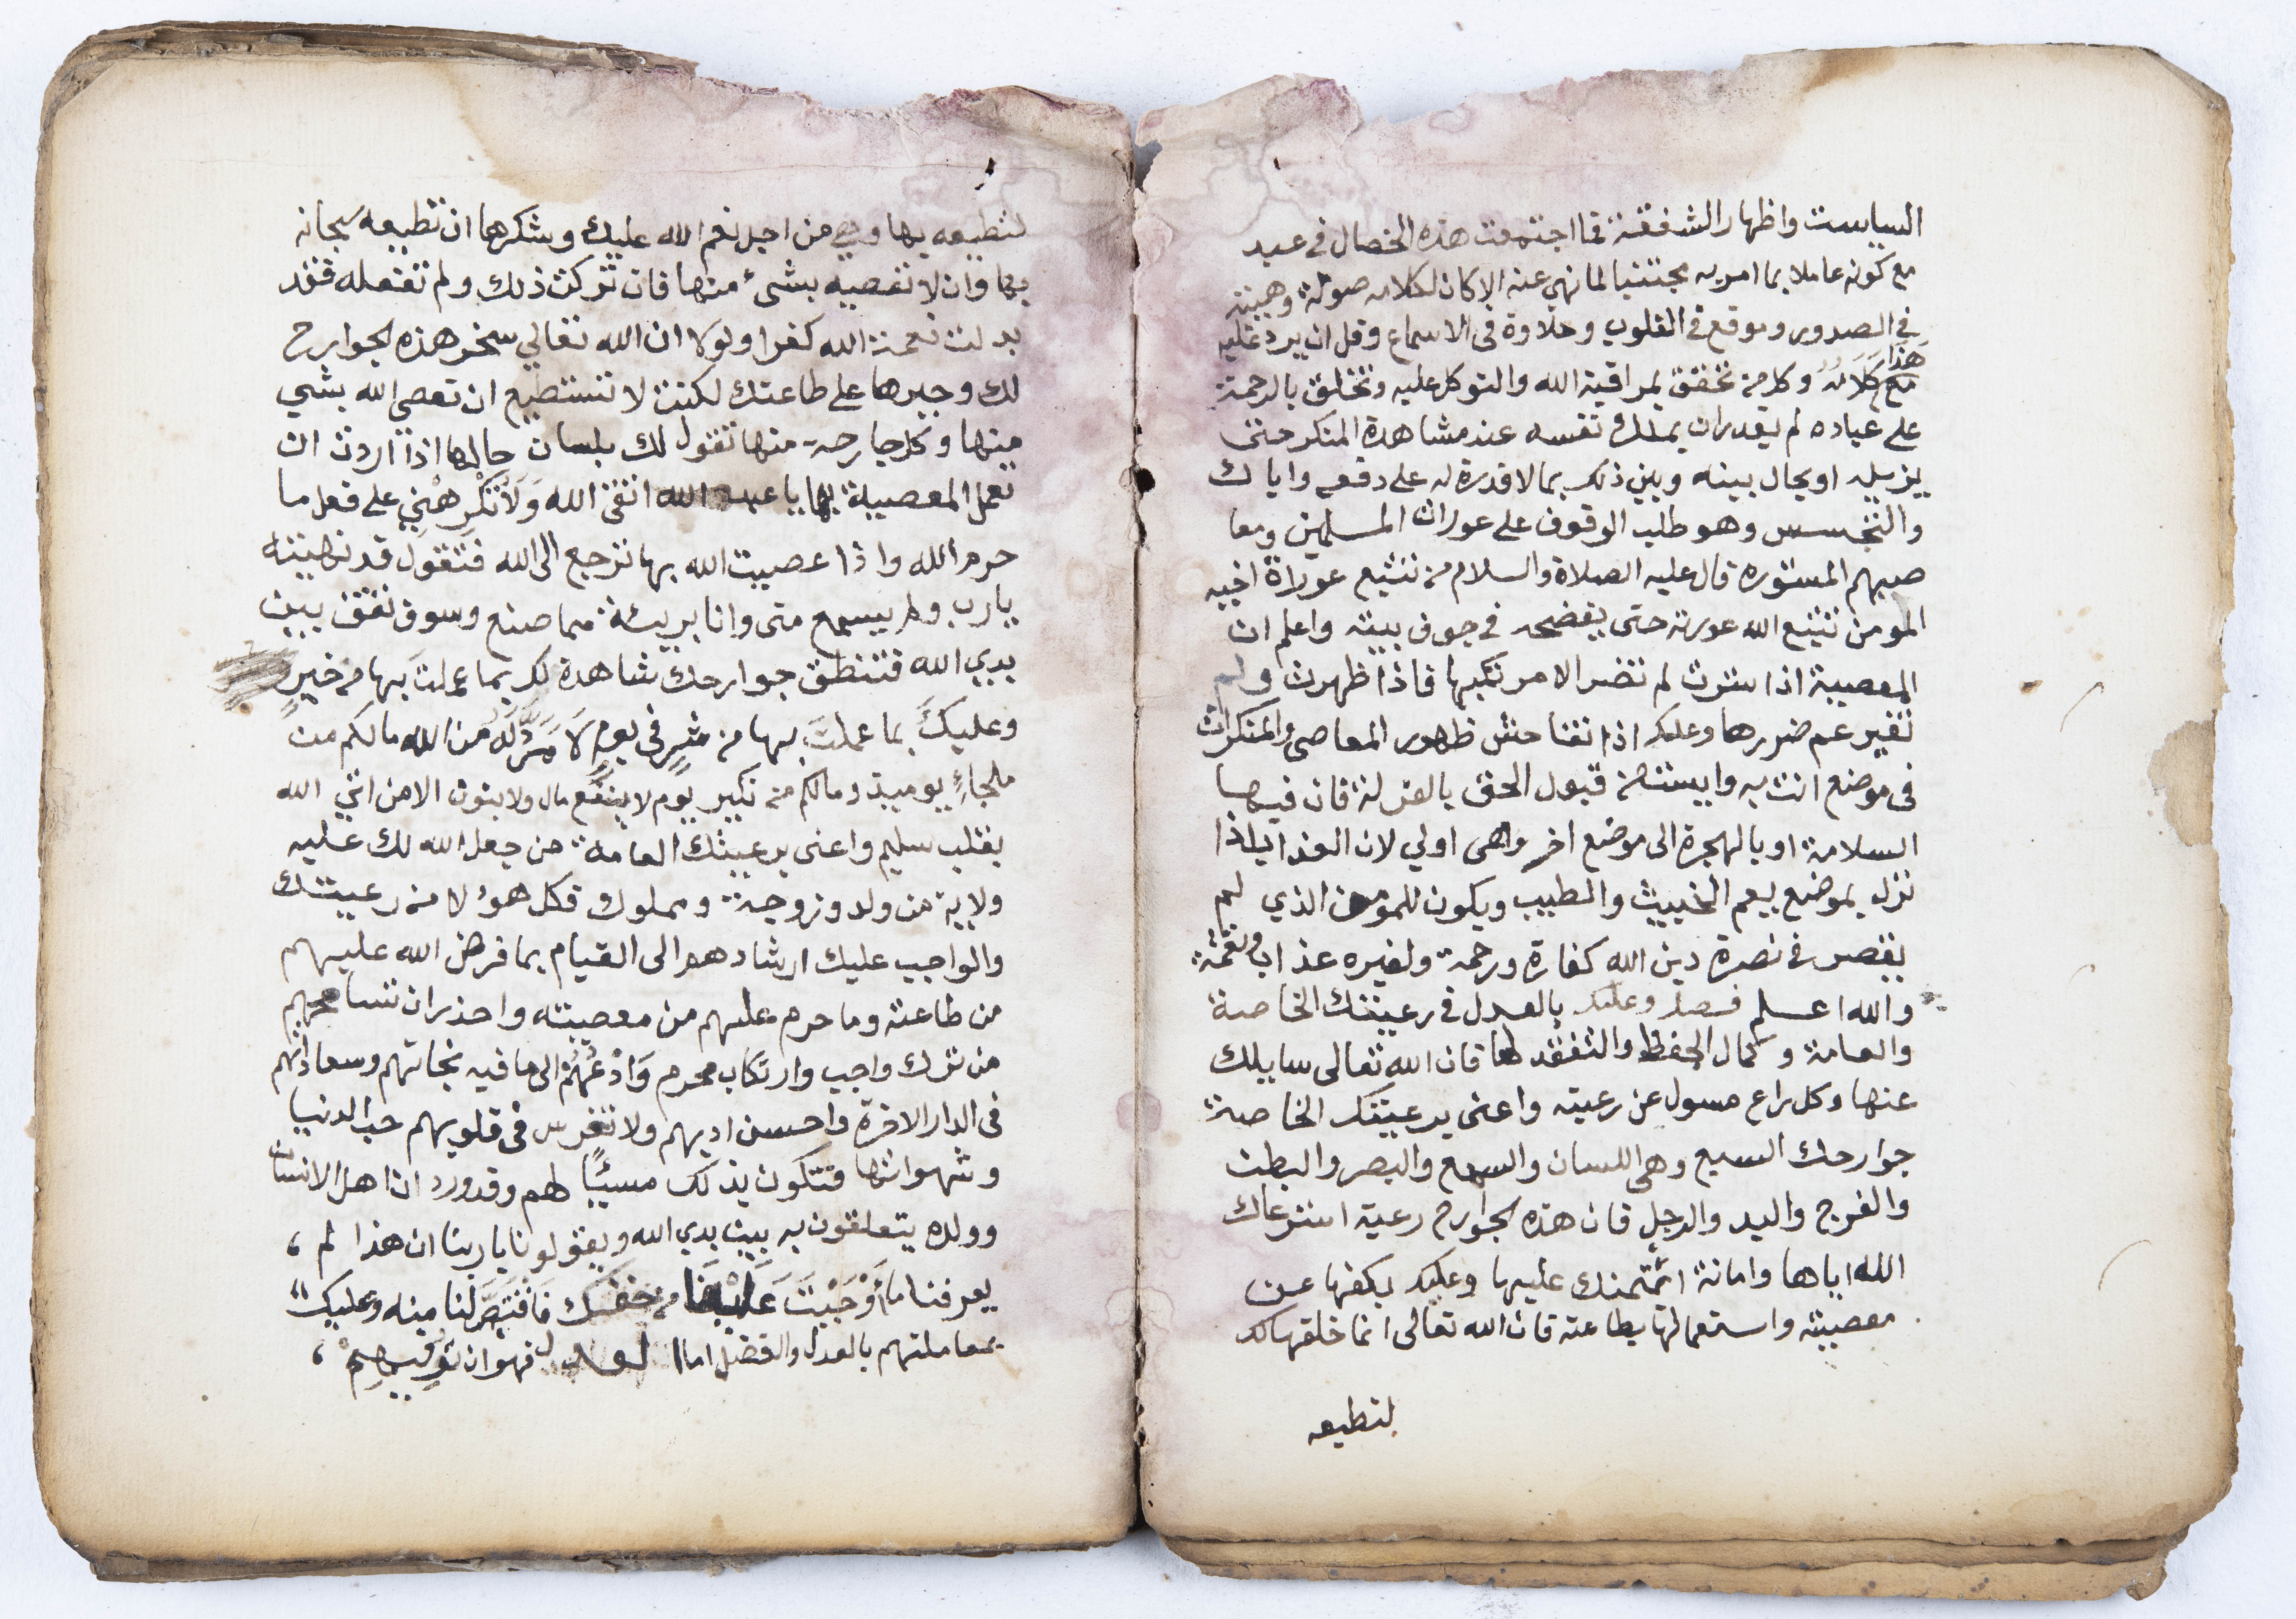 السياست واظهار الشفقة فما اجتمعت هذه الخصال في عبد
مع كونه عاملا بما امر به مجتنبا لما نهي عنه الا كان لكلامه صولة وهيبته
في الصدور وموقع في القلوب وحلاوة في الاسماع وقل ان يرد عليه
هَذا
مع كَلَامُهُ وكل من تحقق بمراقبة الله والتوكل عليه وتخلق بالرحمة
على عباده لم يقدر ان يملك نفسه عند مشاهدة المنكر حتى
يزيله او يحال بينه وبين ذلك بما لا قدرة له على دفعه واياك
والتجسس وهو طلب الوقوف على عورات المسلمين ومعا
صيهم المستوره قال عليه الصلاة والسلام من تتبع عوراة اخيه
المومن تتبع الله عورته حتى يفضحه في جوف بيته واعلم ان
المعصية اذا سترت لم تضر الا مرتكبها فاذا ظهرت ولم
تغير عم ضررها وعليك اذا تفاحش ظهور المعاصي والمنكرات
في موضع انت به وايست من قبول الحق بالعزلة فان فيها
السلامة او بالهجرة الى موضع اخر وهي اولي لان العذاب اذا
نزل بموضع يعم الخبيث والطيب ويكون للمومن الذي لم
يقصر في نصرة دين الله كفارة ورحمة ولغيره عذاب ونقمة
والله اعلم فصل وعليك بالعدل في رعيتك الخاصة
والعامة وكمال الحفظ والتفقد لها فان الله تعالى سايلك
عنها وكل راع مسول عن رعيته واعني برعيتك الخاصة
جوارحك السبع وهي اللسان والسمع والبصر والبطن
والفرج واليد والرجل فان هذه الجوارح رعية استرعاك
الله اياها وامانة ائتمنك عليها وعليك بكفها عن
معصيته واستعمالها بطاعته فان الله تعالى انما خلقها لك
لتطيعه
لتطيعه بها وهي من اجل نعم الله عليك وشكرها ان تطيعه سبحانه
بها وان لا تعصيه بشئ منها فان تركت ذلك ولم تفعله فقد
بدلت نعمة الله كفرا ولولا ان الله تعالي سخر هذه الجوارح
لك وجبرها على طاعتك لكنت لا تستطيع ان تعصي الله بشي
منها وكل جارحة منها تقول لك بلسان حالها اذا اردت ان
تعمل المعصية بها يا عبد الله اتق الله وَلَا تُكْرِهْنِي على فعل ما
حرم الله واذا عصيت الله بها ترجع الى الله فتقول قد نهيته
يارب ولم يسمع متى وانا بريئة مما صنع وسوف تقف بين
يدي الله فتنطق جوارحك شاهدة لك بما عملت بها من خيرٍ
وعليكَ بما عملتَ بها من شرٍ في يومٍ لَا مَرَدَّ لَهُ من الله مالكم من
ملجاءٍ يوميذ ومالكم من نكير يوم لا ينفع مال ولا بنون الا من اتي الله
بقلب سليم واعني برعيتك العامة من جعل الله لك عليه
ولاية من ولد وزوجة ومملوك فكل هؤلا من رعيتك
والواجب عليك ارشادهم الى القيام بما فرض الله عليهم
من طاعته وما حرم عليهم من معصيته واحذر ان تسامحهم
من ترك واجب وارتكاب محرم وَادْعُهُمْ الى ما فيه نجاتهم وسعادتهم
في الدار الاخرة واحسن ادبهم ولا تغرس في قلوبهم حب الدنيا
وشهواتها فتكون بذلك مسيئًا لهم وقد ورد ان اهل الانسان
وولده يتعلقون به بين يدي الله ويقولون يا ربنا ان هذا لم
يعرفنا ما أَوْجَبْتَ عَلَيْنَا من حقك فَاقْتَصَّ لنا منه وعليك
بمعاملتهم بالعدل والفضل اما العدل فهو ان توفيهم